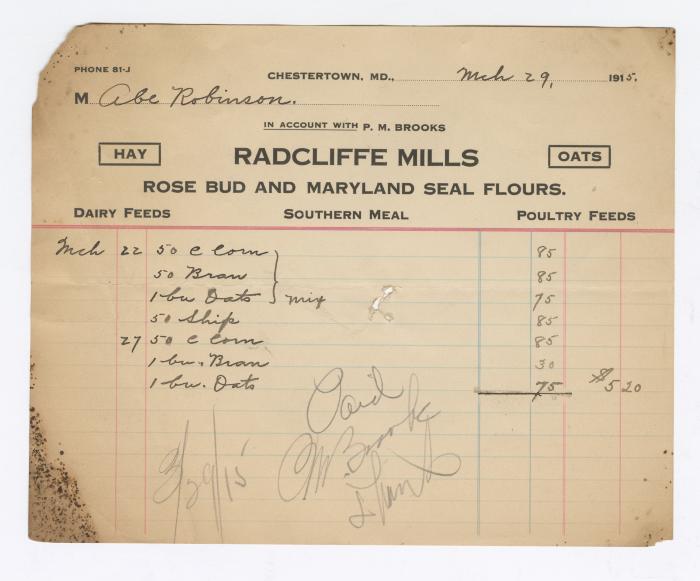 PHONE 81-J
CHESTERTOWN, MD., Mch 29, 1915.
M Abe Robinson.
IN ACCOUNT WITH P. M. BROOKS
HAY RADCLIFFE MILLS OATS
ROSE BUD AND MARYLAND SEAL FLOURS.
DAIRY FEEDS SOUTHERN MEAL POULTRY FEEDS
Mch 22 50 C Corn 85
50 Bran 85
1 bu Oats } mix 75
50 Ship 85
27 50 C Corn 85
1 bu. Bran 30
1 bu. Oats 75 $5 20
Paid
PM Brooks
3/29/15